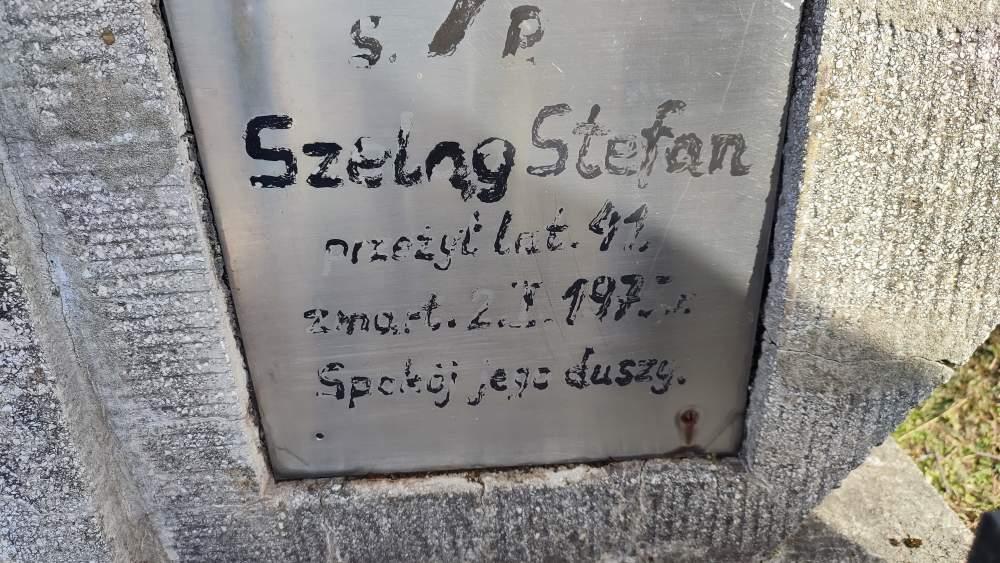 Ś. / P.
Szeląg Stefan
przeżył lat. 41.
zmart. 2.I.1975 r.
Spokój jego duszy.